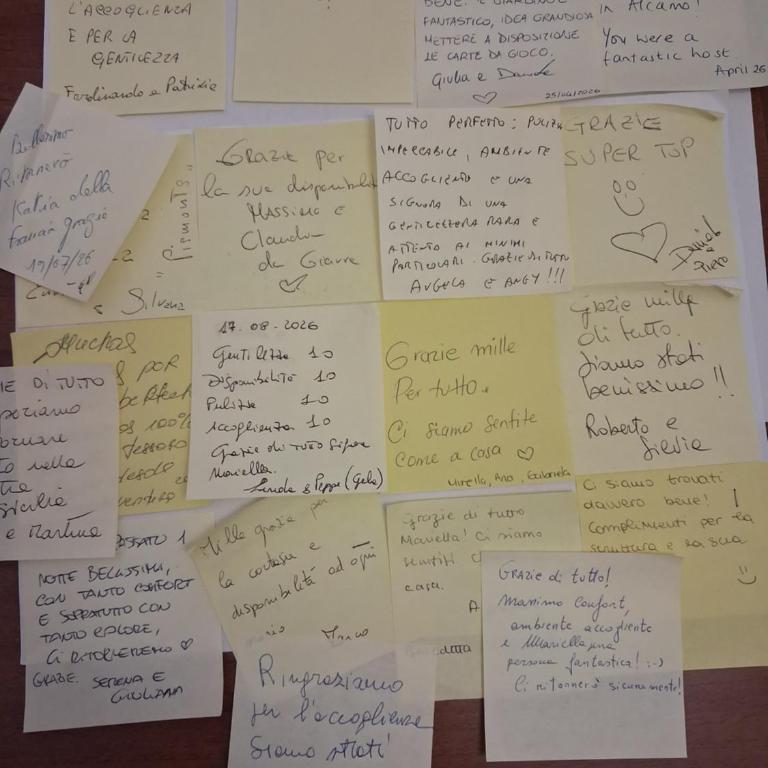 L'ACCOGLIENZA
E PER LA
GENTILEZZA
Ferdinando e Patrizia
BENE. E GIARDINO
FANTASTICO, IDEA GRANDIOSA
METTERE A DISPOSIZIONE
LE CARTE DA GIOCO.
Giulia e Davide
25/04/2026
in Alcamo!
You were a
fantastic host.
April 26
Bellissimo
Ritornerò
Katia della
grazie
19/07/26
"Piemonte"
Silvana
Grazie per
la sua disponibilità
Massimo e
Claudia
da Giarre
TUTTO PERFETTO: PULIZIA
IMPECCABILE, AMBIENTE
ACCOGLIENTE E UNA
SIGNORA DI UNA
GENTILEZZA RARA E
ATTENTA AI MINIMI
PARTICOLARI. GRAZIE DI TUTTO
ANGELA E ANGY!!!
GRAZIE
SUPER TOP
Daniel
e
Piero
Muchas
POR
perfecto
os 100%
17.08-2026
Gentilezza 10
Disponibilità 10
Pulizia 10
Accoglienza 10
Grazie di tutto Sig.ra
Mariella.
Linda e Peppe (Gela)
Grazie mille
Per tutto.
Ci siamo sentite
come a casa
Mirella, Ana, Gabriela
Grazie mille
di tutto.
Siamo stati
benissimo!!
Roberto e
Silvia
IE DI TUTTO
periamo
ornare
o nella
Sicilia
e Martina
PASSATO 1
NOTTE BELLISSIMA,
CON TANTO COMFORT
E SOPRATUTTO CON
TANTO CALORE,
CI RITORNEREMO
GRAZIE. SERENA E
GIULIANA
Mille grazie per
la cortesia e
disponibilità ad ogni
Ringraziamo
per l'accoglienza
Siamo stati
Grazie di tutto
Mariella! Ci siamo
sentiti
casa.
A
Ci siamo trovati
davvero bene!
Complimenti per la
struttura e la sua
Grazie di tutto!
Massimo Confort,
ambiente accogliente
e Mariella una
persona fantastica! :-)
Ci ritornerò sicuramente!